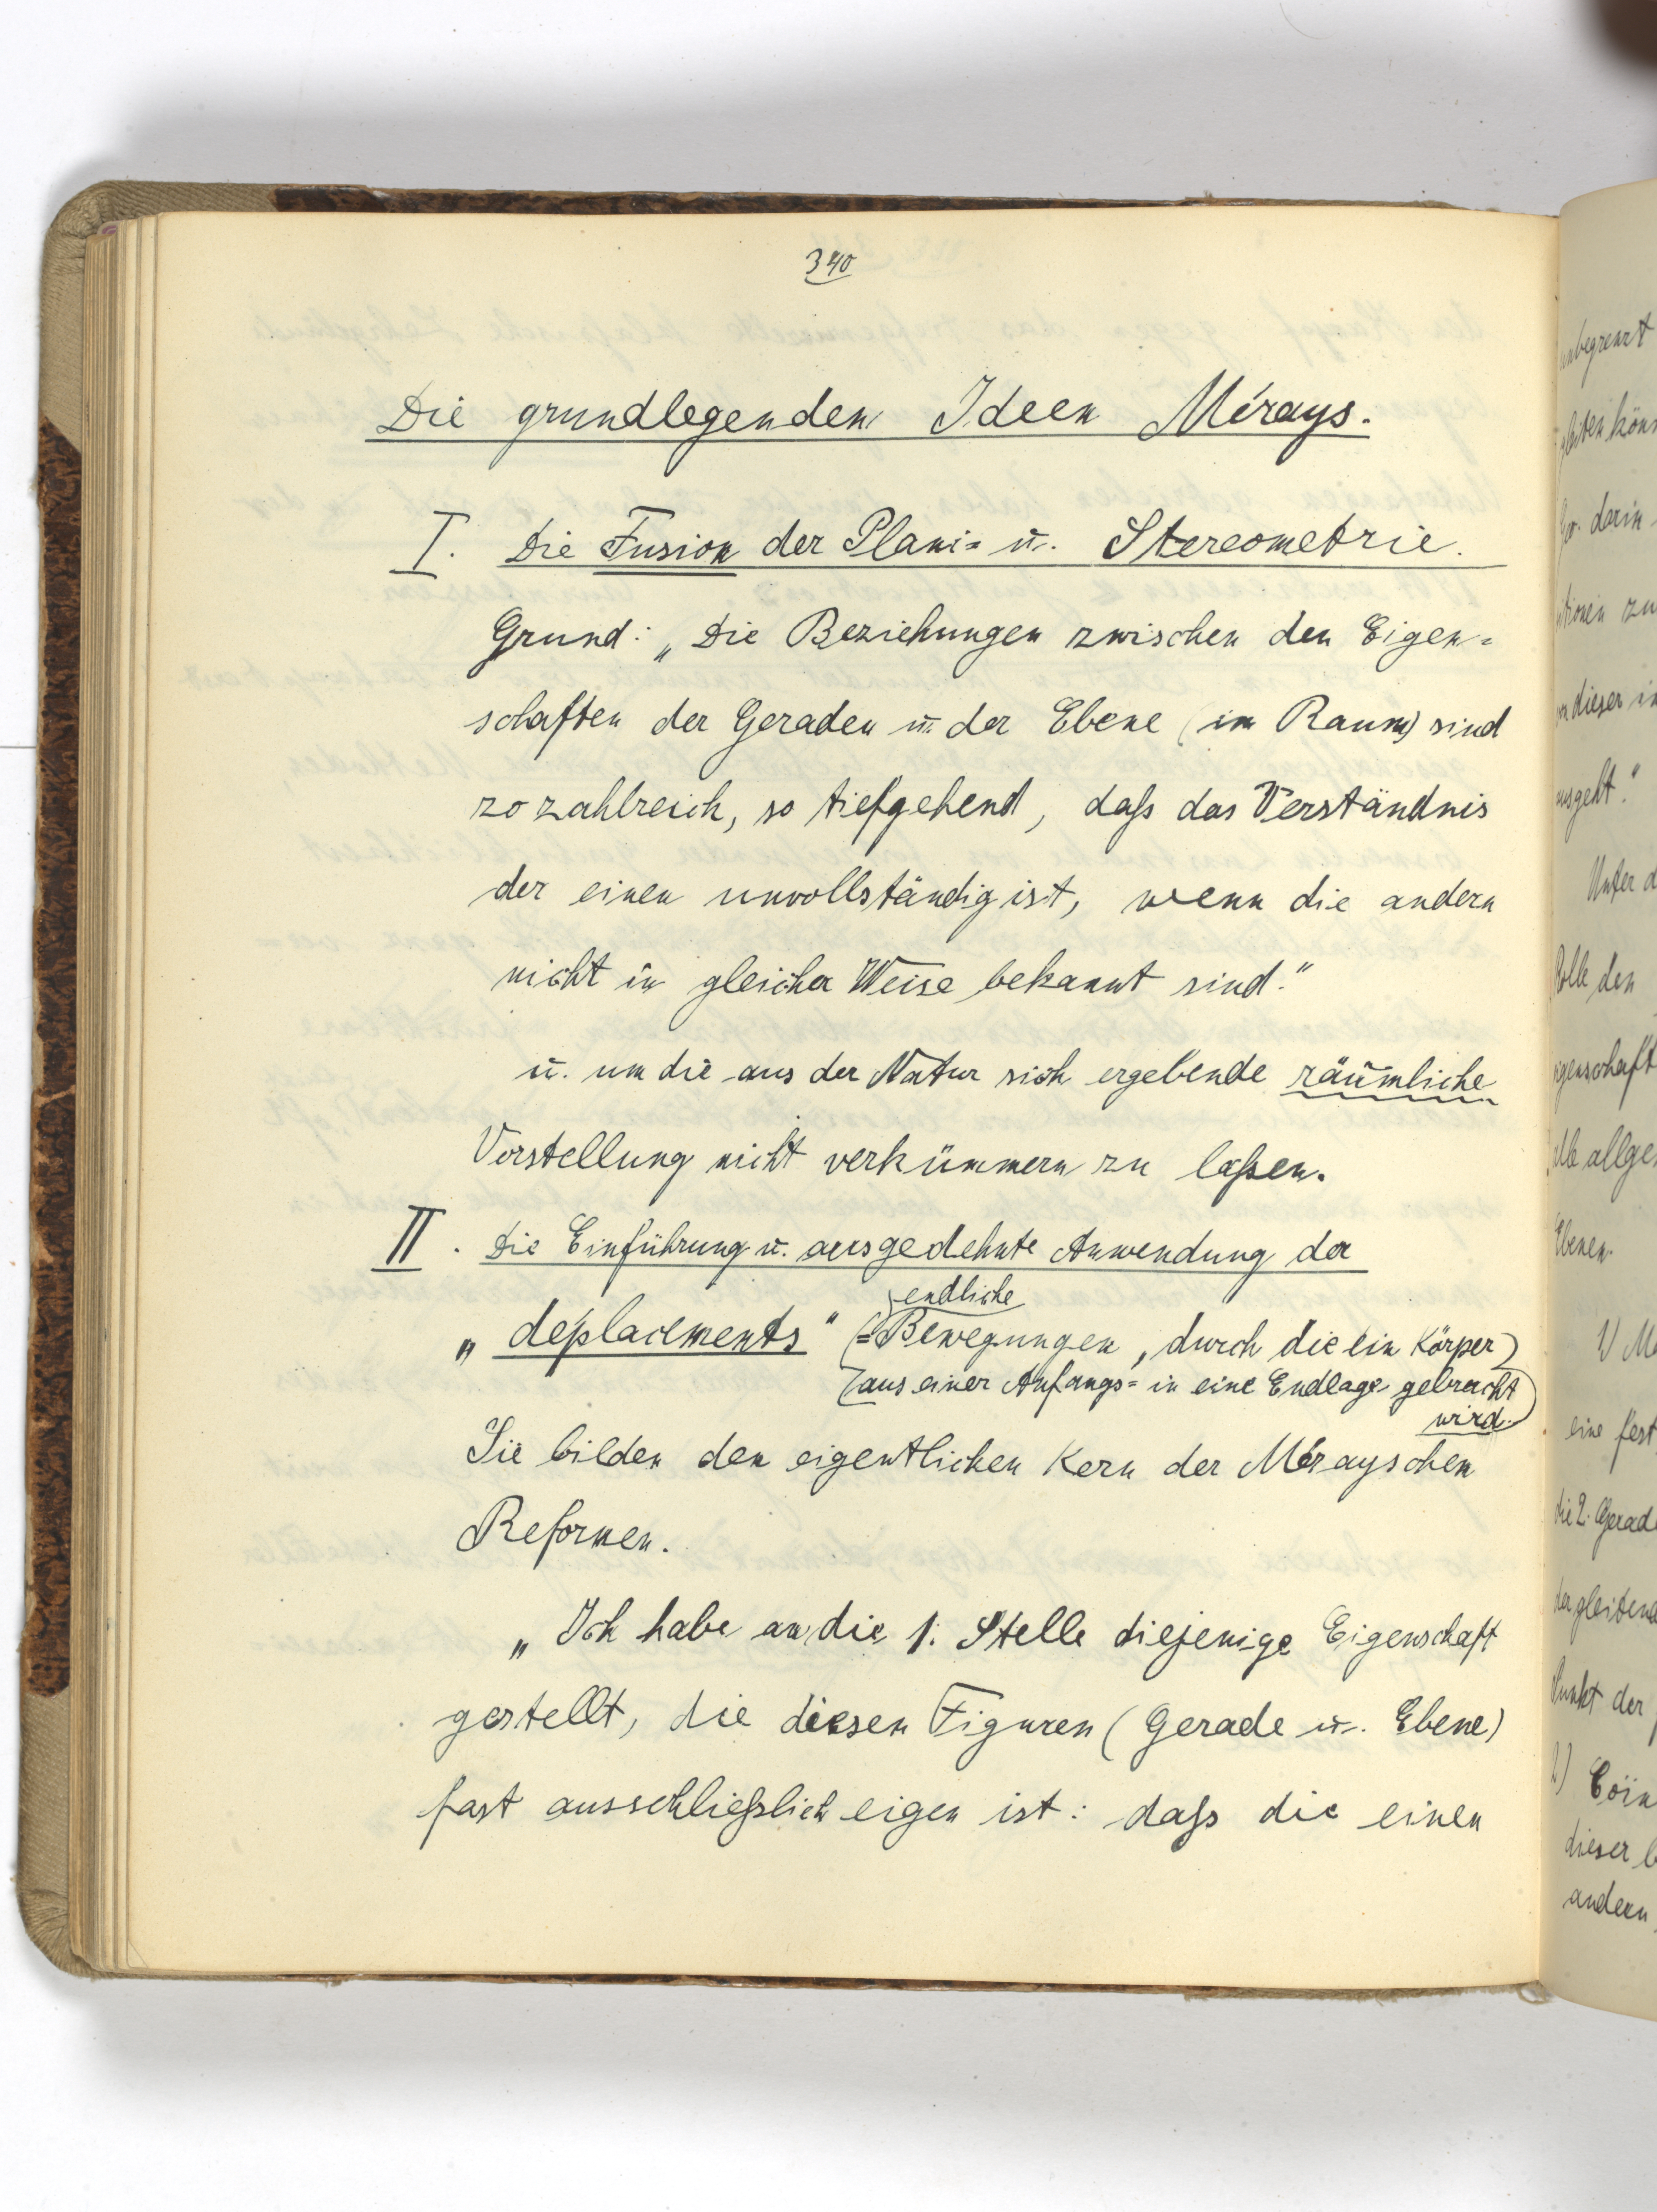 340
Die grundlegenden Ideen Mérays.
I. Die Fusion der Plani= u. Stereometrie.
Grund: „Die Beziehungen zwischen den Eigen=
schaften der Geraden u. der Ebene (im Raum) sind
so zahlreich, so tiefgehend, daß das Verständnis
der einen unvollständig ist, wenn die andern
nicht in gleicher Weise bekannt sind."
u. um die aus der Natur sich ergebende räumliche
Vorstellung nicht verkümmern zu laßen.
II. Die Einführung u. ausgedehnte Anwendung der
endliche
„deplacements" (=Bewegungen, durch die ein Körper
aus einer Anfangs= in eine Endlage gebracht
wird.)
Sie bilden den eigentlichen Kern der Mérayschen
Reformen.
„Ich habe an die 1. Stelle diejenige Eigenschaft
gestellt, die diesen Figuren (Gerade u. Ebene)
fast ausschließlich eigen ist: daß die einen
unbegrenzt
gleiten kön
darin
zu
dieser in
ausgeht."
Unter d
Rolle den
igenschaft
allge
Ebenen.
1) M
eine fest
die 2. Gerad
der gleitend
Punkt der
2) Coin
dieser b
andern